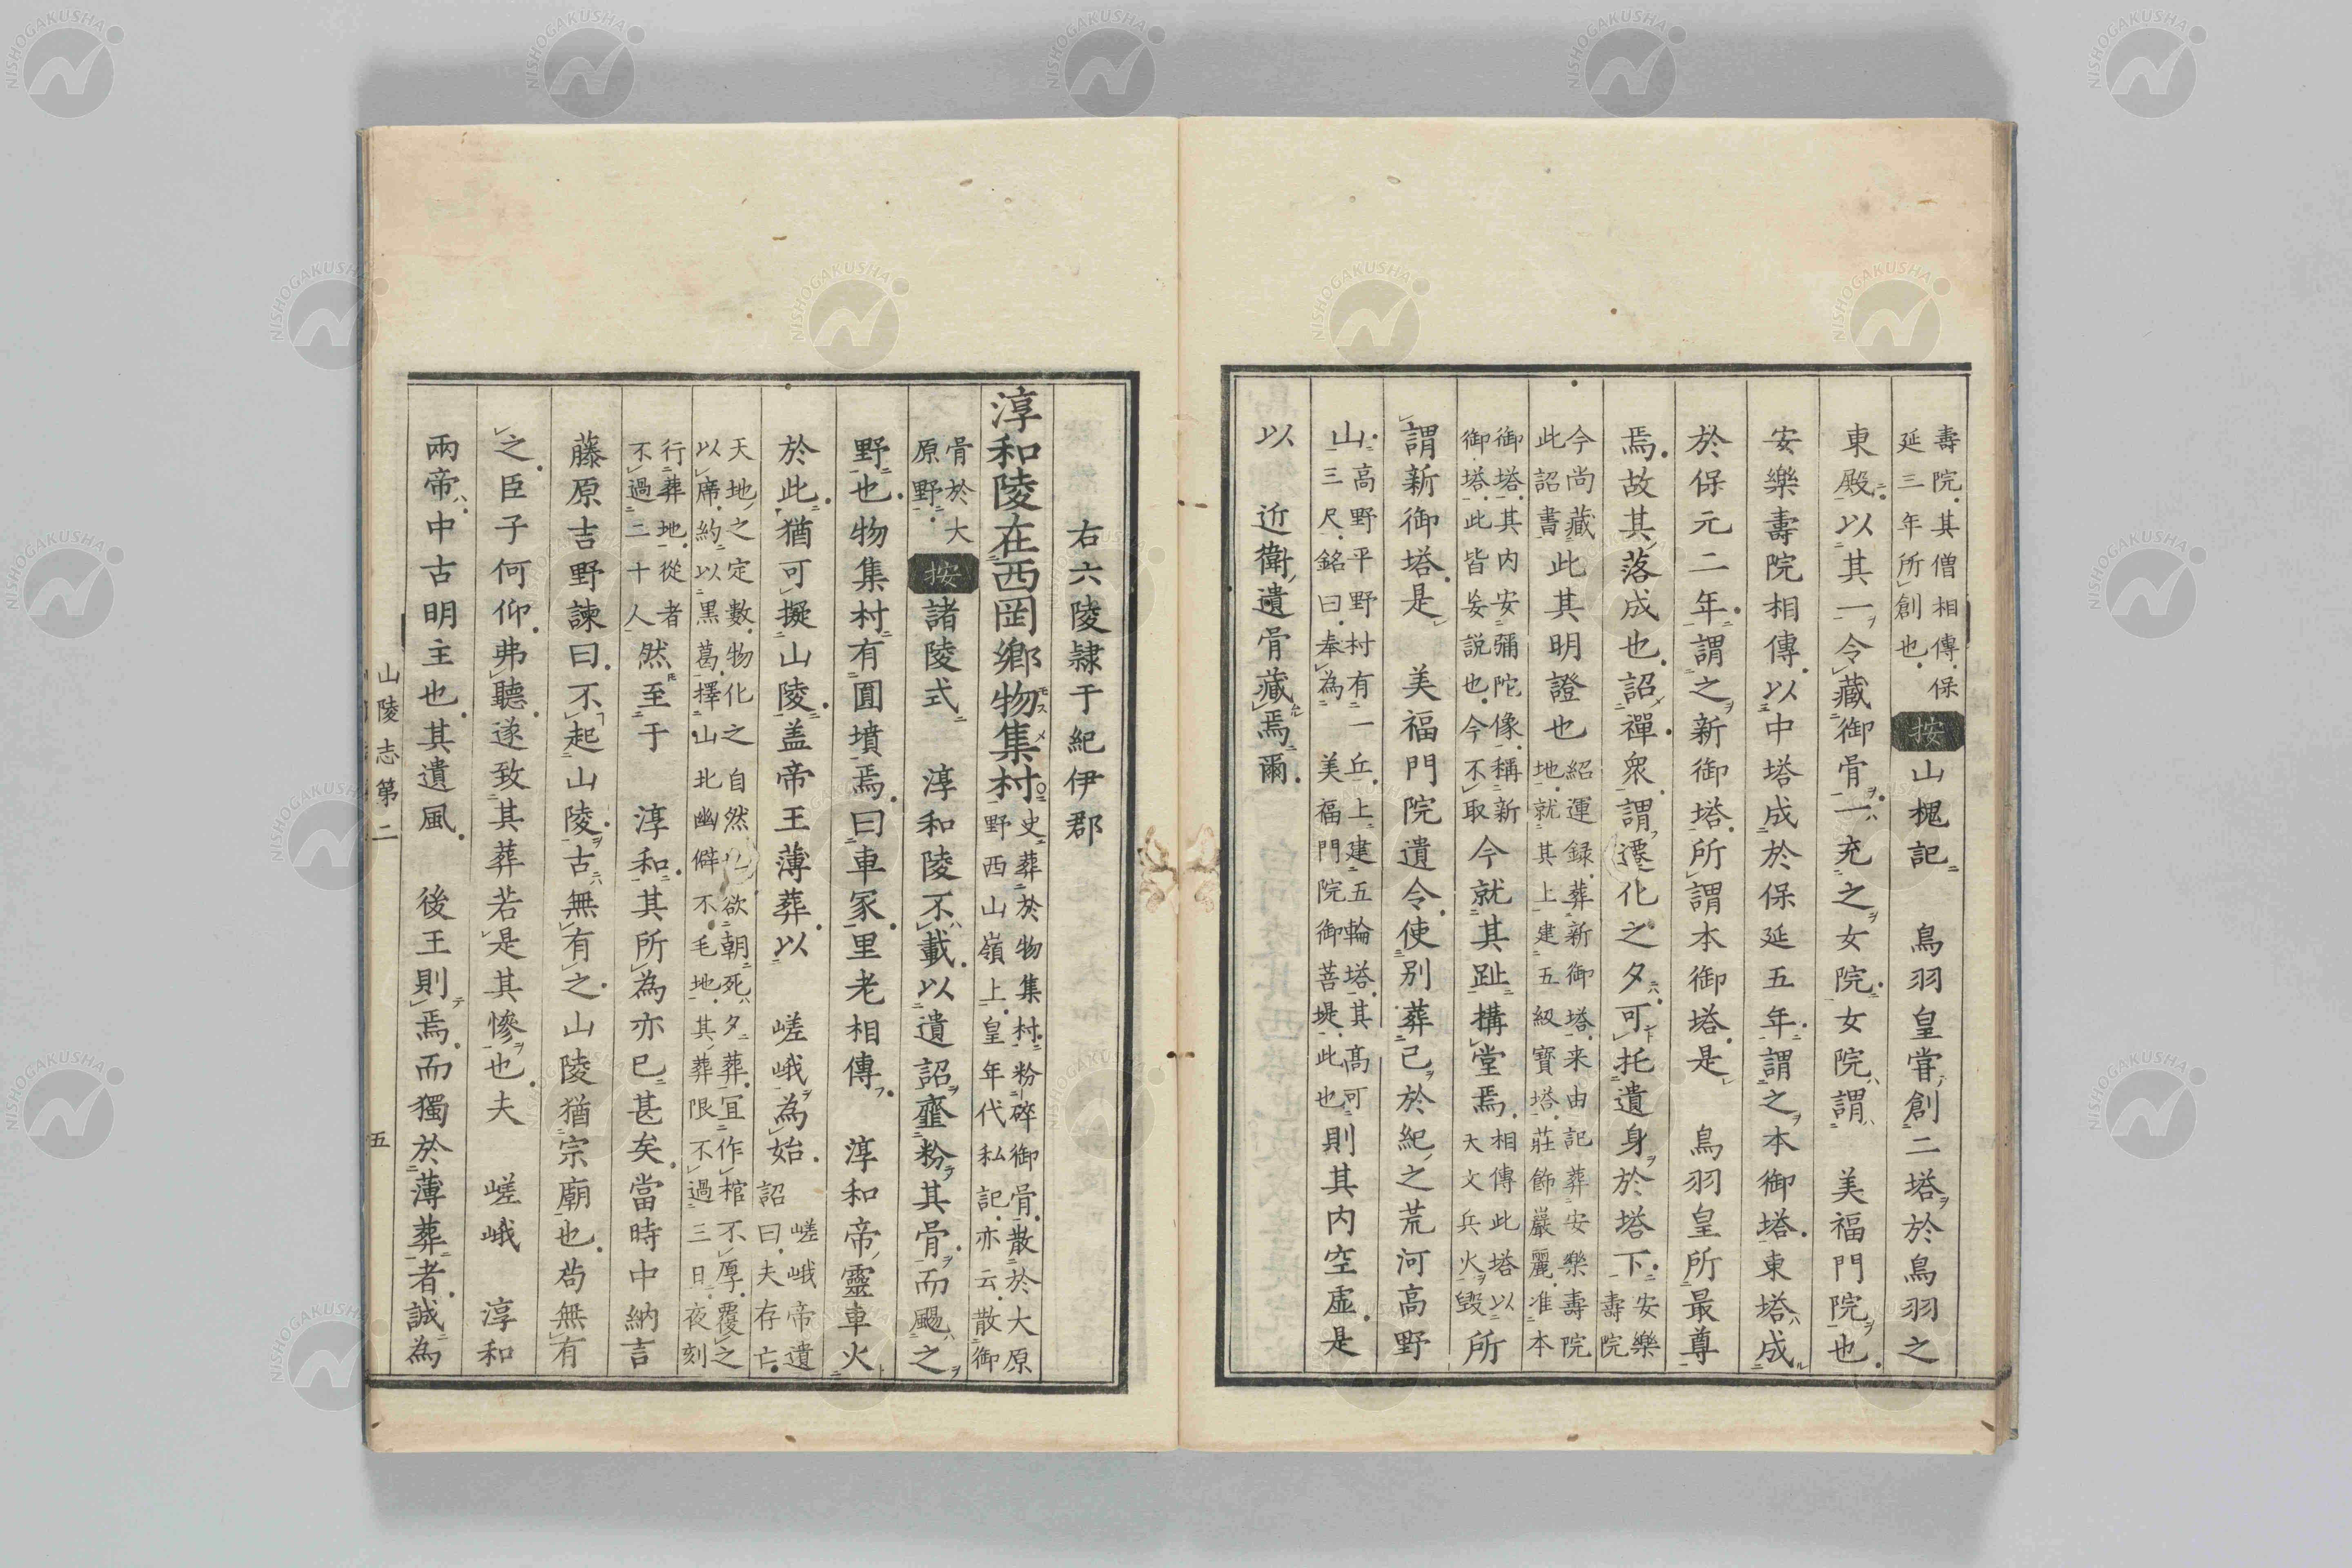 壽院其僧相傳保
延三年所創也
按山槐記 鳥羽皇甞創二塔於鳥羽之
東殿以其一令藏御骨一充之女院女院謂 美福門院也
安樂壽院相傳以中塔成於保延五年謂之本御塔東塔成
於保元二年謂之新御塔所謂本御塔是 鳥羽皇所最尊
焉故其落成也詔禪衆謂遷化之夕可托遺身於塔下
安樂
壽院
今尚藏
此詔書
此其明證也
紹運録葬新御塔来由記葬安樂壽院
地就其上建五級寳塔莊飾嚴麗准本
御塔其内安彌陀像稱新
御塔此皆妄説也今不取
今就其趾搆堂焉
相傳此塔以
大文兵火毀
所
謂新御塔是 美福門院遺令使别葬已於紀之荒河高野
山
高野平野村有一丘上建五輪塔其高可
三尺銘曰奉為 美福門院御菩提此也
則其内空虚是
以 近衛遺骨藏焉爾
右六陵隷于紀伊郡
淳和陵在西岡鄉物集村
史葬於物集村粉碎御骨散於大原
野西山嶺上皇年代私記亦云散御
骨於大
原野
按諸陵式 淳和陵不載以遺詔虀粉其骨而颺之
野也物集村有圓墳焉曰車冢里老相傳 淳和帝靈車火
於此猶可擬山陵盖帝王薄葬以 嵯峨為始
嵯峨帝遺
詔曰夫存亡
天地之定數物化之自然欲朝死夕葬宜作棺不厚覆之
以席約以黒葛擇山北幽僻不毛地其葬限不過三日夜刻
行葬地從者
不過二十人
然至于 淳和其所為亦已甚矣當時中納言
藤原吉野諫曰不起山陵古無有之山陵猶宗廟也苟無有
之臣子何仰弗聽遂致其葬若是其惨也夫 嵯峨 淳和
兩帝中古明主也其遺風 後王則焉而獨於薄葬者誠為
山陵志第二
五